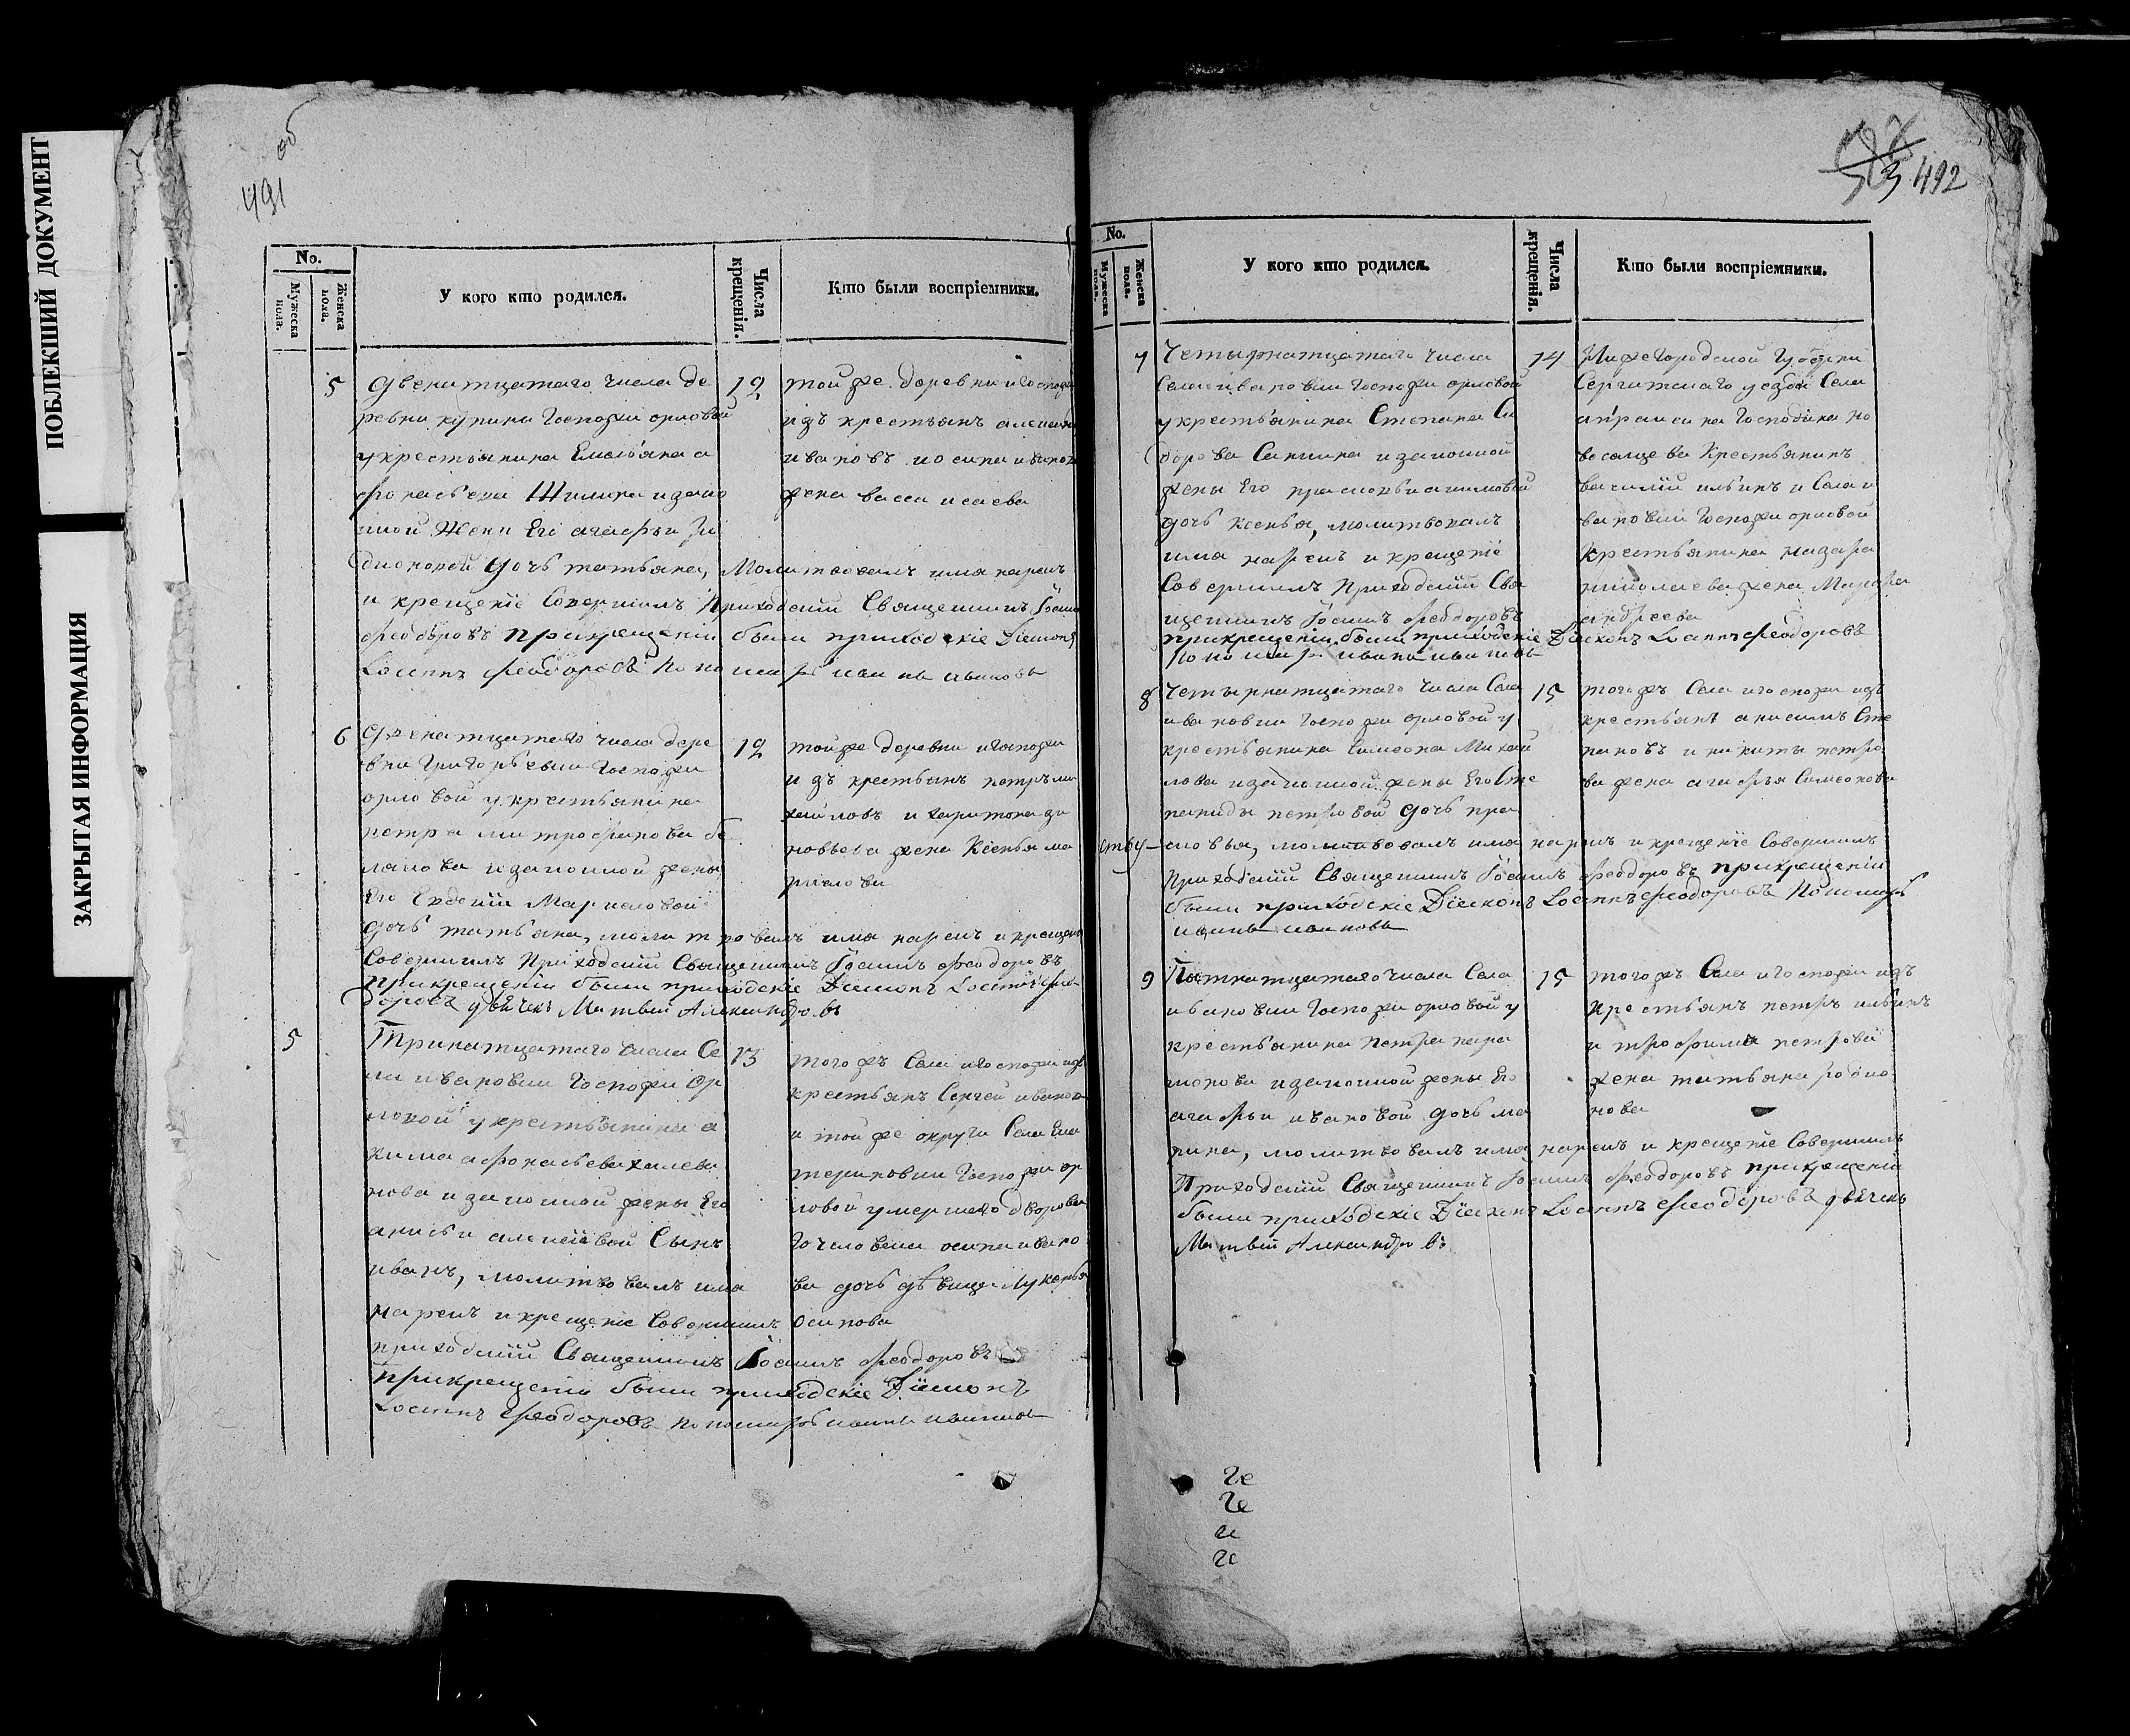 ПОБЛЕКШИЙ ДОКУМЕНТ
ЗАКРЫТАЯ ИНФОРМАЦИЯ
491
об
No.
Мужеска пола.
Женска пола.
У кого кто родился.
Числа крещенія.
Кто были воспріемники.
5
двенатцатаго числа де
ревни купини Госпожи орловой
укрестьянина Емельяна а
фонасьева Шилина изако
нной Жены Его агафьи
дочь татьяна, Молитвовалъ имя нарекъ
и крещеніе Совершилъ Приходскій Священникъ Іоаннъ
феодоровъ прикрещеніи были приходскіе Діаконъ
Іоаннъ феодоровъ Пономарь иванъ ивановъ
12
тойже деревни игоспожи
изъ крестьянъ алексей
ивановъ иосипа иванова
жена васса исаева
6
двенатцатаго числа дере
вни Григорьевки Госпожи
орловой укрестьянина
петра митрофанова
изаконной жены
Его Евдокіи Маркеловой
дочь татьяна, молитвовалъ имя нарекъ и крещеніе
Совершилъ Приходскій Священникъ Іоаннъ феодоровъ
прикрещеніи были приходскіе Діаконъ Іоаннъ фео
доровъ дьячекъ Матвей Александровъ
12
тойже деревни игоспожи
изъ крестьянъ петръ ми
хайловъ и харитона зи
новьева жена Ксенья ма
5
Тринатцатаго числа Се
ла ивановки Госпожи ор
ловой укрестьянина а
кима афонасьева
изаконной жены Его
анисьи алексеевой Сынъ
иванъ, молитвовалъ имя
нарекъ и крещеніе Совершилъ
приходскій Священникъ Іоаннъ феодоровъ
прикрещеніи были приходскіе Діаконъ
Іоаннъ феодоровъ пономарь иванъ ивановъ
13
тогожъ Села игоспожи изъ
крестьянъ Сергей ивановъ
и тойже округи Села Ека
териновки Госпожи ор
ловой умершаго дворова
го человека осипа ивано
ва дочь девица Лукерья
осипова
492
No.
Мужеска пола.
Женска пола.
У кого кто родился.
Числа крещенія.
Кто были воспріемники.
7
Четырнатцатаго числа
Села ивановки Госпожи орловой
укрестьянина Степана Си
дорова изаконной
жены Его прасковьи акимовой
дочь ксенья, молитвовалъ
имя нарекъ и крещеніе
Совершилъ Приходскій Свя
щенникъ Іоаннъ феодоровъ
прикрещеніи были приходскіе Діаконъ Іоаннъ феодоровъ
пономарь иванъ ивановъ
14
Нижегородской Губерни
Сергатскаго уезда Села
Господина но
восильцева Крестьянинъ
василій ильинъ и Села и
вановки Госпожи орловой
Крестьянина назара
николаева жена Марфа
андреева
8
Четырнатцатаго числа Села
ивановки госпожи орловой у
крестьянина Симеона Михай
лова изаконной жены Его Сте
паниды петровой дочь пра
сковья, молитвовалъ имя нарекъ и крещеніе Совершилъ
Приходскій Священникъ Іоаннъ феодоровъ прикрещеніи
были приходскіе Діаконъ Іоаннъ феодоровъ Пономарь
иванъ ивановъ
15
тогожъ Села игоспожи изъ
крестьянъ анисимъ Сте
пановъ и никиты петро
ва жена агафья Симеонова
9
Пятнатцатаго числа Села
ивановки Госпожи орловой у
крестьянина петра пара
монова изаконной жены Его
агафьи ивановой дочь ма
рина, молитвовалъ имя нарекъ и крещеніе Совершилъ
Приходскій Священникъ Іоаннъ феодоровъ прикрещеніи
были приходскіе Діаконъ Іоаннъ феодоровъ дьячекъ
Матвей Александровъ
15
тогожъ Села игоспожи изъ
Крестьянъ петръ ильинъ
и трофима петрова
жена татьяна родио
нова